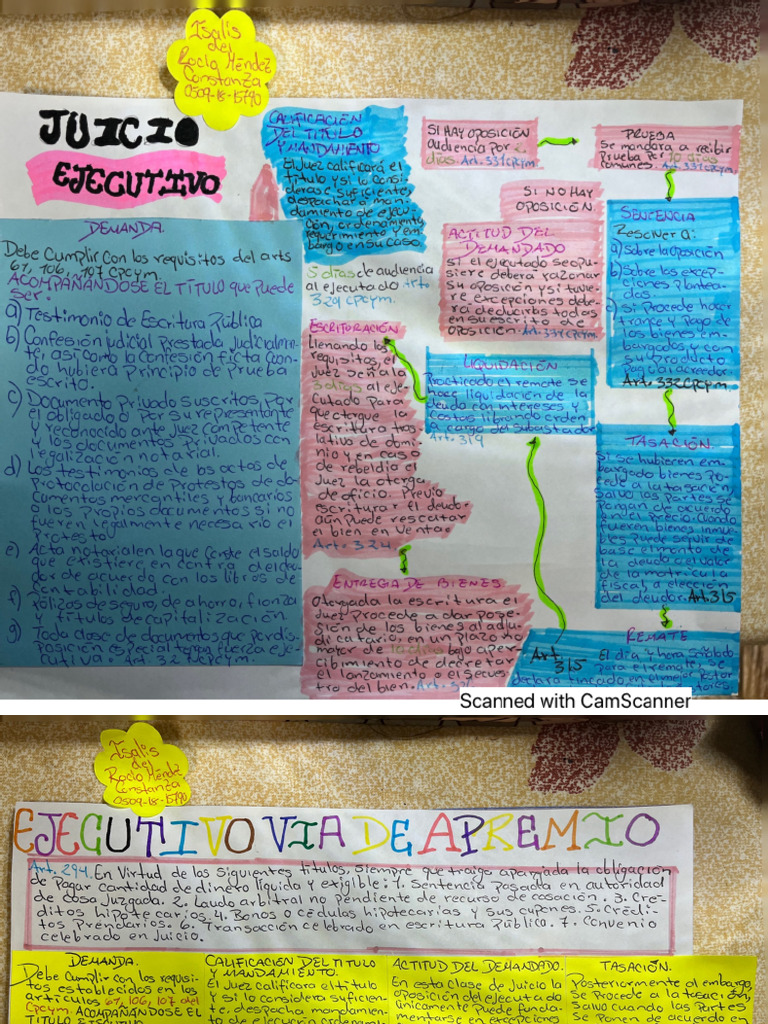 Isalis
del
Rocío Méndez
Constanza
0509-18-15790
JUICIO
EJECUTIVO
DEMANDA.
Debe Cumplir con los requisitos del arts
61, 106, 107 CPCYM.
ACOMPAÑANDOSE EL TÍTULO que Puede
Ser:
a) Testimonio de Escritura Pública
b) Confesión judicial Prestada Judicialmen-
te, así como la confesión ficta cuan-
do hubiera Principio de Prueba
escrito.
c) Documento Privado suscritos, Por
el obligado o Por su representante
y reconocido ante Juez competente
y los documentos Privados con
legalización notarial.
d) Los testimonios de los actos de
Protocolación de Protestos de do-
cumentos mercantiles y bancarios
o los Propios documentos si no
fueren legalmente necesario el
Protesto
e) Acta notarial en la que conste el saldo
que existiere en contra del deu-
dor de acuerdo con los libros de
contabilidad.
f) Pólizas de seguro, de ahorro, fianza
y títulos de capitalización
g) Toda clase de documentos que Por dis-
Posición especial tenga fuerza eje-
cutiva. Art. 327 CPCYM.
CALIFICACIÓN
DEL TÍTULO
Y MANDAMIENTO
El Juez calificará el
título y si lo consi-
deras e suficiente,
despachará man-
damiento de ejecu-
ción, ordenamiento,
requerimiento y em-
bargo en su caso.
5 días de audiencia
al ejecutado Art.
329 CPCYM.
SI HAY OPOSICIÓN
audiencia por 2
días. Art. 331 CPCYM
PRUEBA
Se mandará a recibir
Prueba Por 10 días
comunes. Art. 331 CPCYM
SI NO HAY
OPOSICIÓN.
ACTITUD DEL
DEMANDADO
Si el ejecutado se opu-
siere deberá razonar
su oposición y si tuvie-
re excepciones debe-
rá deducirlas todas
en su escrito de
oposición. Art. 331 CPCYM.
SENTENCIA
Resolverá:
a) Sobre la oposición
b) Sobre las excep-
ciones Plantea-
das.
c) Si procede hacer
trance y Pago de
los bienes em-
bargados y con
su Producto
Pagar acreedor
Art. 332 CPCYM
ESCRITURACIÓN
Llenando los
requisitos, el
Juez señala
3 días al eje-
cutado Para
que otorgue la
escritura tras-
lativo de domi-
nio y en caso
de rebeldía el
Juez la otorga
de oficio. Previo
escriturar el deudor
aún Puede rescatar
el bien en venta.
Art. 324
LIQUIDACIÓN
Practicado el remate se
hace liquidación de la
deuda con intereses y
costas librando orden
a cargo del subastador
Art. 319
TASACIÓN.
Si se hubieren em-
bargado bienes Pro-
cede a la tasación,
Salvo las Partes se
Pongan de acuerdo
en el Precio. Cuando
fueren bienes inmue-
bles Puede servir de
base el monto de
la deuda o el valor
de la matrícula
fiscal, a elección
del deudor. Art. 315
ENTREGA DE BIENES
Otorgada la escritura el
Juez Procede a dar pose-
sión de los bienes al adju-
dicatario en un plazo no
mayor de 10 días bajo aper-
cibimiento de decretar
el lanzamiento o el secues-
tro del bien. Art.
Art
315
REMATE
El día y hora señalado
para el remate, se
declara fincado en el mejor Postor
Scanned with CamScanner
Isalis
del
Rocío Méndez
Constanza
0509-18-15790
EJECUTIVO VIA DE APREMIO
Art. 294. En Virtud de los siguientes títulos, siempre que traiga aparejada la obligación
de Pagar cantidad de dinero líquida y exigible: 1. Sentencia Pasada en autoridad
de cosa Juzgada. 2. Laudo arbitral no pendiente de recurso de casación. 3. Cré-
ditos hipotecarios. 4. Bonos o cédulas hipotecarias y sus cupones. 5. Crédi-
tos Prendarios. 6. Transacción celebrado en escritura Pública. 7. Convenio
celebrado en Juicio.
DEMANDA.
Debe Cumplir con los requisi-
tos establecidos en los
artículos 61, 106, 107 del
CPCYM. ACOMPAÑANDOSE EL
TÍTULO EJECUTIVO
CALIFICACIÓN DEL TITULO
Y MANDAMIENTO.
El Juez calificara el título
y si lo considera suficien-
te, despacha mandamien-
to de ejecución ordenam-
ACTITUD DEL DEMANDADO.
En esta clase de Juicio la
oposición del ejecutado
únicamente Puede funda-
mentarse en excepciones
TASACIÓN.
Posteriormente al embargo,
se Procede a la tasación,
salvo cuando las Partes
se Ponen de acuerdo en